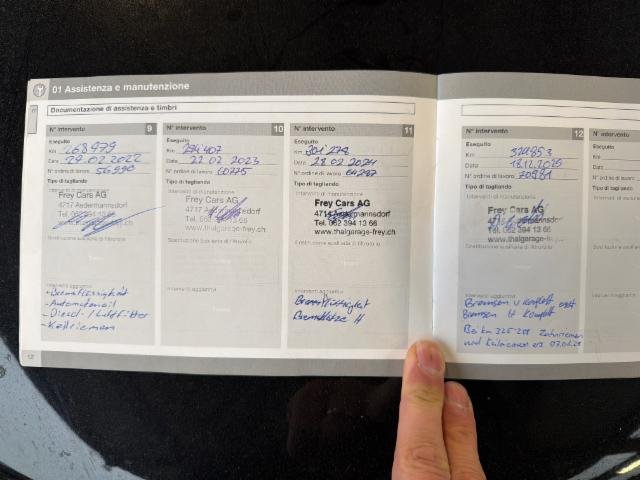 01 Assistenza e manutenzione
Documentazione di assistenza e timbri
N° intervento 9
Eseguito
Km 268979
Data 29.02.2022
N° ordine di lavoro 56990
Tipo di tagliando
Interventi di manutenzione
Frey Cars AG
4717 Aedermannsdorf
Tel. 062 394 13 66
www.thalgarage-frey.ch
Sostituzione ausiliaria di filtro/olio
Interventi aggiuntivi
- Bremsflüssigkeit
- Automatenöl
- Diesel- / Luftfilter
- Keilriemen
12
N° intervento 10
Eseguito
Km 284407
Data 22.02.2023
N° ordine di lavoro 60775
Tipo di tagliando
Interventi di manutenzione
Frey Cars AG
4717 Aedermannsdorf
Tel. 062 394 13 66
www.thalgarage-frey.ch
Sostituzione ausiliaria di filtro/olio
Interventi aggiuntivi
N° intervento 11
Eseguito
Km 301279
Data 28.02.2024
N° ordine di lavoro 64287
Tipo di tagliando
Interventi di manutenzione
Frey Cars AG
4714 Aedermannsdorf
Tel. 062 394 13 66
www.thalgarage-frey.ch
Sostituzione ausiliaria di filtro/olio
Interventi aggiuntivi
Bremsflüssigkeit
Bremsklötze H
N° intervento 12
Eseguito
Km
Data 18.12.2025
N° ordine di lavoro 70981
Tipo di tagliando
Interventi di manutenzione
Frey Cars AG
Tel. 062 394 13 66
www.thalgarage-frey.ch
Sostituzione ausiliaria di filtro/olio
Interventi aggiuntivi
Bremsen V komplett
Bremsen H komplett
Bei km 325'258 Zahnriemen
und Keilriemen
N° intervento
Eseguito
Km
Data
N° ordine di
Tipo di tagli
Interventi